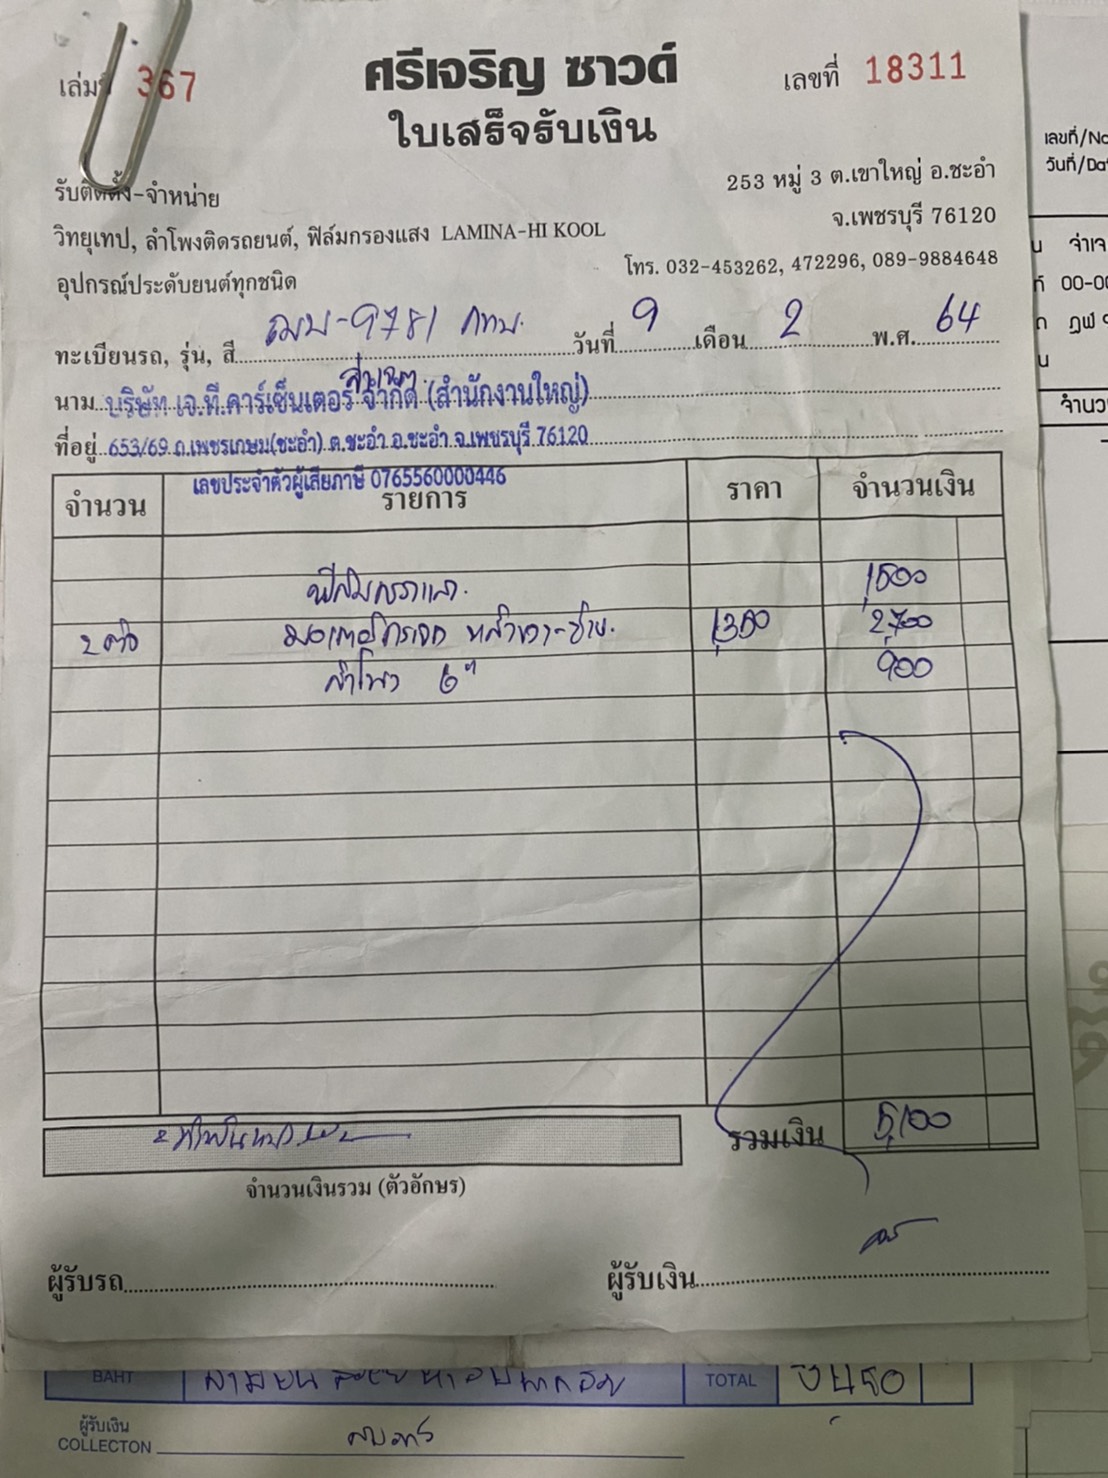 เล่มที่ 367
ศรีเจริญ ซาวด์
เลขที่ 18311
ใบเสร็จรับเงิน
รับติดตั้ง-จำหน่าย
253 หมู่ 3 ต.เขาใหญ่ อ.ชะอำ
วิทยุเทป, ลำโพงติดรถยนต์, ฟิล์มกรองแสง LAMINA-HI KOOL
จ.เพชรบุรี 76120
อุปกรณ์ประดับยนต์ทุกชนิด
โทร. 032-453262, 472296, 089-9884648
ทะเบียนรถ, รุ่น, สี 9781 กทม. วันที่ 9 เดือน 2 พ.ศ. 64
นาม บริษัท เจ.ที.คาร์เซ็นเตอร์ จำกัด (สำนักงานใหญ่)
ที่อยู่ 653/69 ถ.เพชรเกษม(ชะอำ) ต.ชะอำ อ.ชะอำ จ.เพชรบุรี 76120
เลขประจำตัวผู้เสียภาษี 0765560000446
จำนวน รายการ ราคา จำนวนเงิน
ฟิล์มกรองแสง 1,500
2 ตัว มอเตอร์กระจก หลังขวา-ซ้าย 1,350 2,700
ลำโพง 6" 900
รวมเงิน 5,100
จำนวนเงินรวม (ตัวอักษร)
ผู้รับรถ
ผู้รับเงิน
BAHT
TOTAL
ผู้รับเงิน
COLLECTON
เลขที่/No
วันที่/Dat
00-00
จำนวน